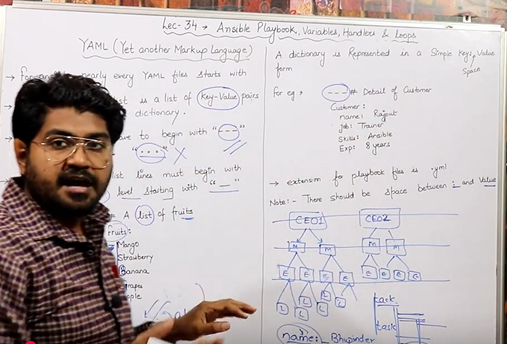 Lec-34 → Ansible Playbook, Variables, Handlers & Loops
YAML (Yet another Markup Language)
nearly every YAML files starts with
st is a list of Key-Value pairs
dictionary.
ve to begin with "---"
"..." X
list lines must begin with
level starting with "_"
A list of fruits
Fruits:
Mango
Strawberry
Banana
A dictionary is Represented in a Simple Key: Value
form
Space
For eg → --- # Detail of Customer
Customer:
name: Rajput
Job: Trainer
Skills: Ansible
Exp: 8 years
→ extension for playbook files is .yml
Note:- There should be space between : and Value
CEO1 CEO2
M M M M
E E E E E E E E
L L L L L
task
task
name: Bhupinder